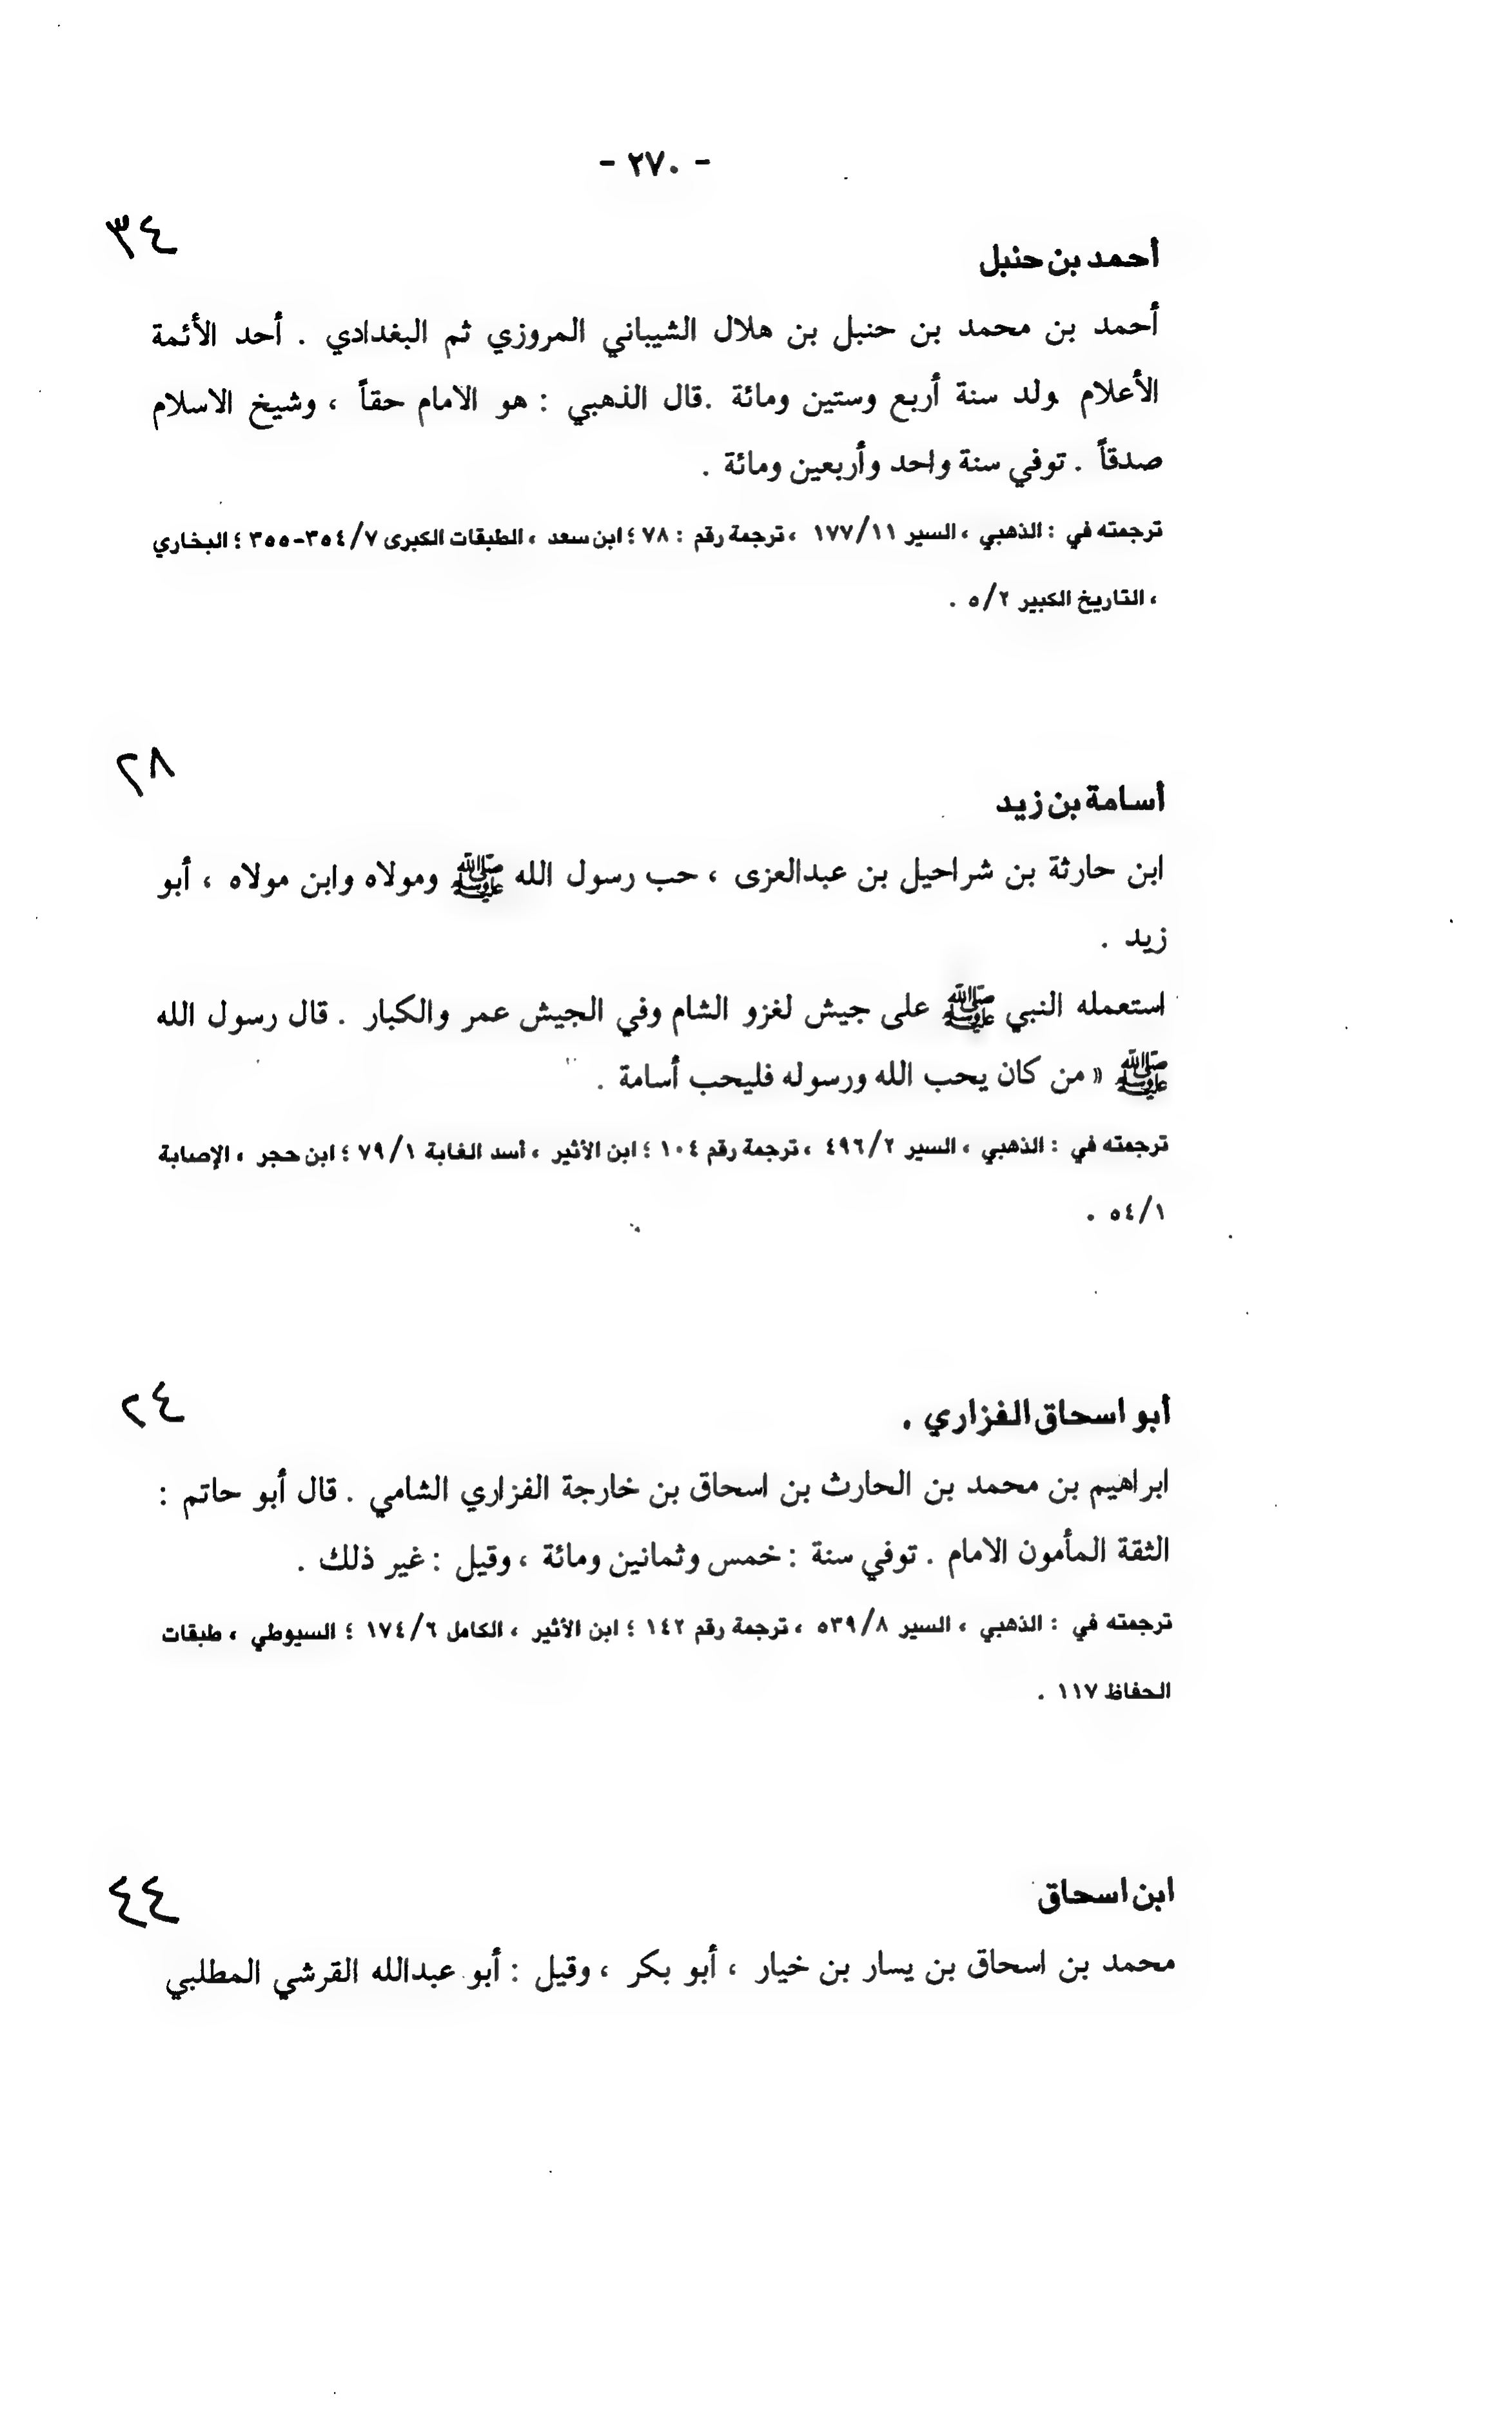 - ٢٧٠ -
٣٤
أحمد بن حنبل
أحمد بن محمد بن حنبل بن هلال الشيباني المروزي ثم البغدادي . أحد الأئمة
الأعلام ولد سنة أربع وستين ومائة .قال الذهبي : هو الامام حقاً ، وشيخ الاسلام
صدقاً . توفي سنة واحد وأربعين ومائة .
ترجمته في : الذهبي ، السير ١٧٧/١١ ، ترجمة رقم : ٧٨ ؛ ابن سعد ، الطبقات الكبرى ٣٥٤/٧-٣٥٥ ؛ البخاري
، التاريخ الكبير ٥/٢ .
٢٨
أسامة بن زيد
ابن حارثة بن شراحيل بن عبدالعزى ، حب رسول الله ﷺ ومولاه وابن مولاه ، أبو
زيد .
استعمله النبي ﷺ على جيش لغزو الشام وفي الجيش عمر والكبار . قال رسول الله
ﷺ « من كان يحب الله ورسوله فليحب أسامة .
ترجمته في : الذهبي ، السير ٤٩٦/٢ ، ترجمة رقم ١٠٤ ؛ ابن الأثير ، أسد الغابة ٧٩/١ ؛ ابن حجر ، الإصابة
٥٤/١ .
٢٤
أبو اسحاق الفزاري .
ابراهيم بن محمد بن الحارث بن اسحاق بن خارجة الفزاري الشامي . قال أبو حاتم :
الثقة المأمون الامام . توفي سنة : خمس وثمانين ومائة ، وقيل : غير ذلك .
ترجمته في : الذهبي ، السير ٥٣٩/٨ ، ترجمة رقم ١٤٢ ؛ ابن الأثير ، الكامل ١٧٤/٦ ؛ السيوطي ، طبقات
الحفاظ ١١٧ .
٤٤
ابن اسحاق
محمد بن اسحاق بن يسار بن خيار ، أبو بكر ، وقيل : أبو عبدالله القرشي المطلبي